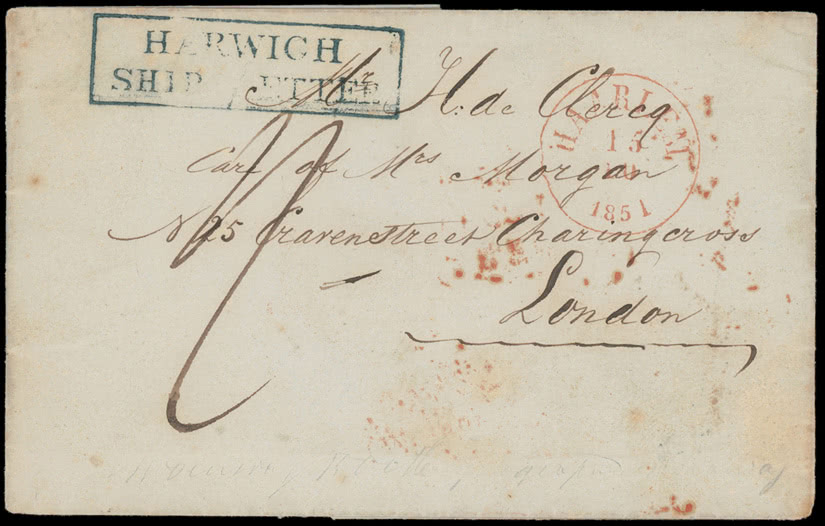 HARWICH
SHIP LETTER
Mr. H. de Clercq
Care of Mrs Morgan
No 25 Cravenstreet Charingcross
London
HAARLEM
15
1851